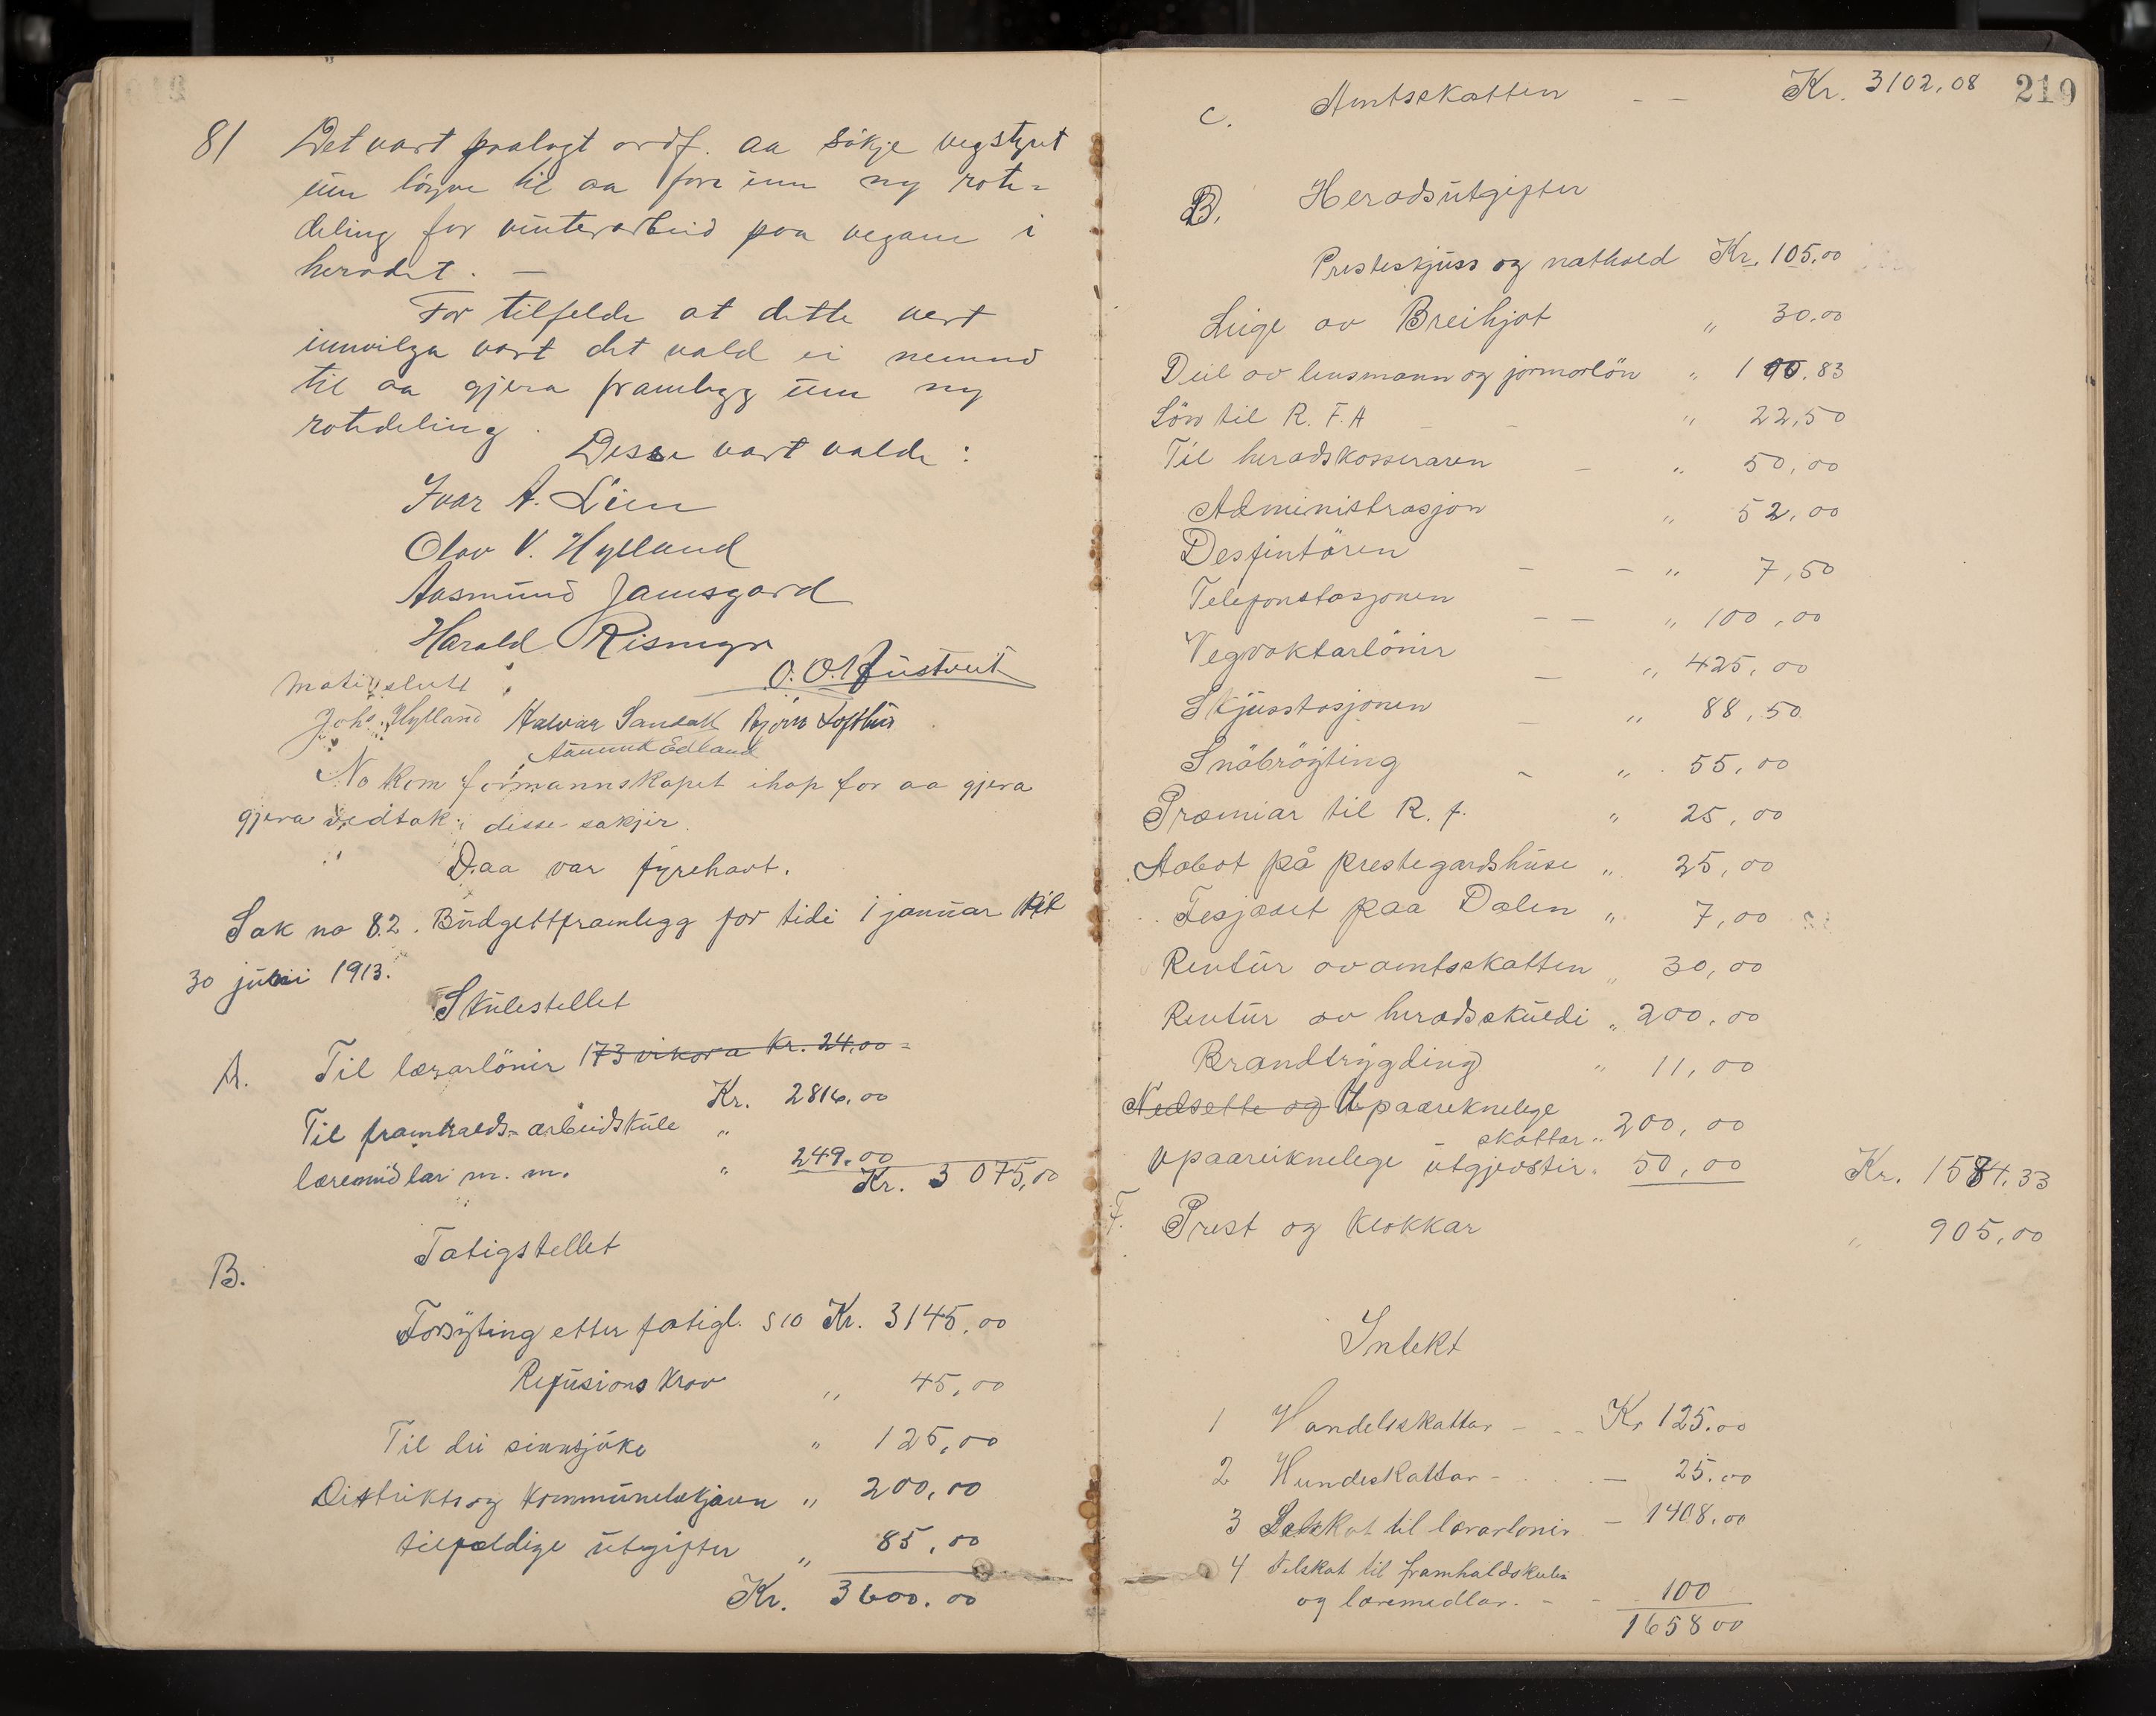 81 Det vart paalagt ordf. aa sökje vegstyret
um löyve til aa föra inn ny rote-
deling for vinterarbeid paa vegane i
heradet. —
For tilfelde at dette vert
innvilga vart det vald ei nemnd
til aa gjera framlegg um ny
rotedeling.
Desse vart valde:
Ivar A. Lien
Olav V. Hylland
Aasmund Jamsgard
Harald Rismyr
O. O. Rustveit
Moti slutt
Johs. Hylland Halvar Sandok Björn Lofthus
Aanund Edland
No kom formannskapet ihop for aa gjera
gjera vedtak i disse sakjir.
Daa var fyrehavt.
Sak no 82. Budgettframlegg for tidi 1 januar til
30 juni 1913.
Skulestellet
A. Til lærarlönir 173 vikora Kr. 24,00 =
Kr. 2816,00
Til framhalds- arbeidskule "
læremidlar m. m. " 249.00
Kr. 3 075,00
Fatigstellet
B.
Forsyting etter fatigl. § 10 Kr. 3145,00
Refusions krav " 45,00
Til dei sinnsjuke " 125,00
Distrikts og kommunelækjaren " 200,00
tilfeldige utgifter " 85,00
Kr. 3600.00
219
C. Amtsskatten — — Kr. 3102,08
D. Heradsutgifter
Presteskjuss og nathold Kr. 105,00
Leige av Breihjot " 30,00
Deil av lensmann og jormorlön " 100,83
Lön til R. F. A — — " 22,50
Til heradskasseraren — " 50,00
Administrasjon " 52,00
Desfintören — — " 7,50
Telefonstasjonen — — " 100,00
Vegvaktarlönir — " 425,00
Skjusstasjonen — " 88,50
Snöbröyting - " 55,00
Præmiar til R. f. " 25,00
Aabot på prestegardshuse " 25,00
Fesjaaet paa Dalen " 7,00
Rentur av amtsskatten " 30,00
Rentur av heradsskuldi " 200,00
Brandtrygding " 11,00
Nedsette og Upaareknelege
skattar " 200,00
Upaareiknelege utgjevstir " 50,00 Kr. 1584,33
F. Prest og klokkar " 905,00
Intekt
1 Handelsskattar - - - Kr 125.00
2 Hundeskattar - — 25.00
3 Delskot til lærarlonir — 1408.00
4 Tilskot til framhaldskulen
og læremedlar. - - 100
1658 00